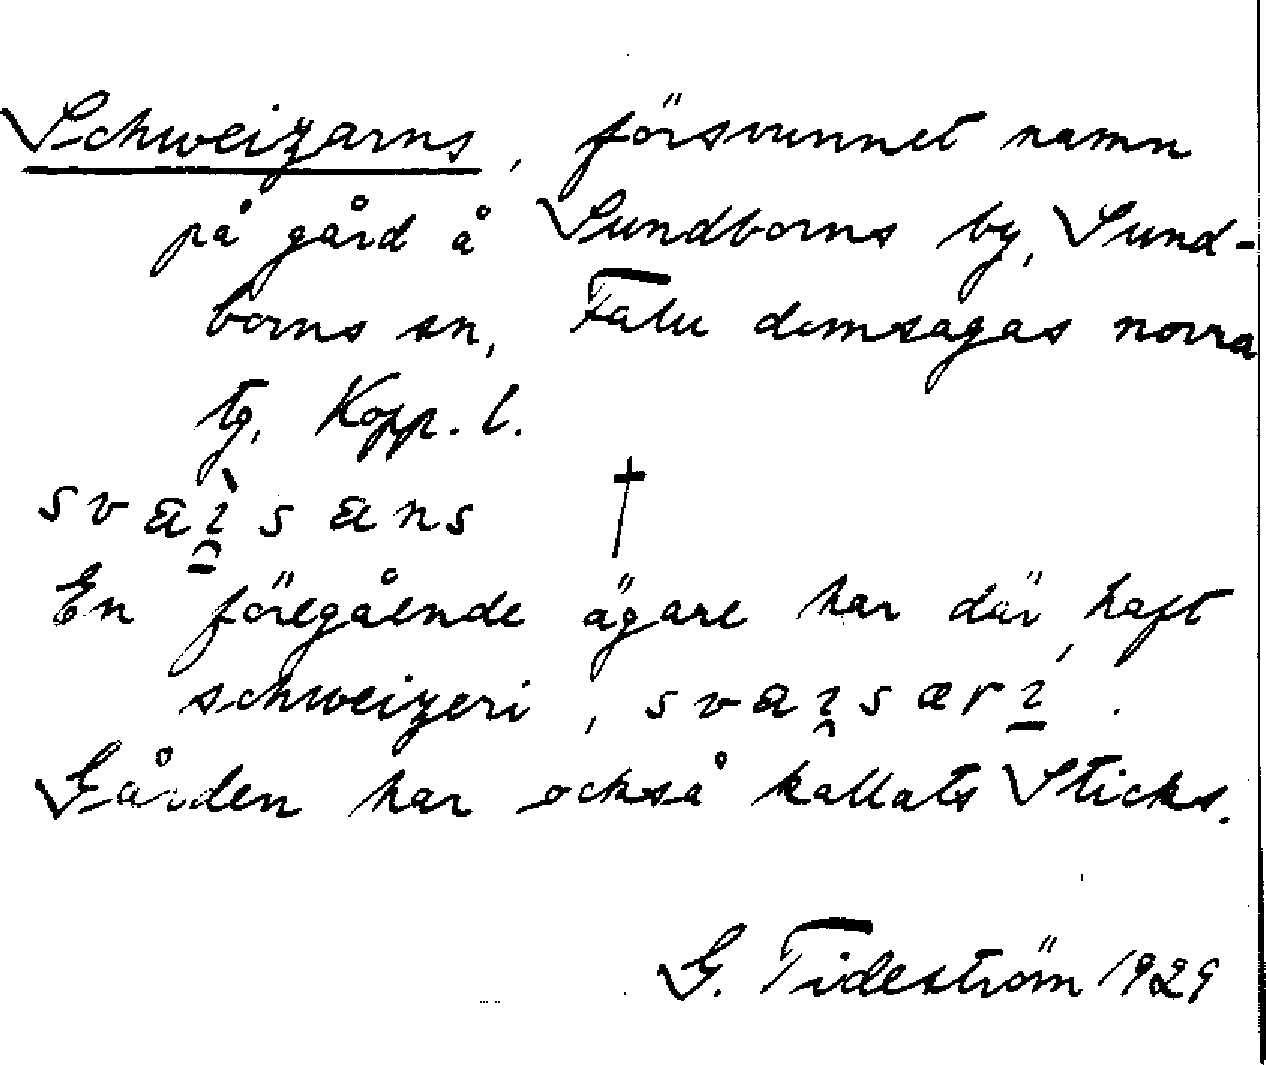 Schweizarns, försvunnet namn
på gård å Sundborns by, Sund-
borns sn, Falu domsagas norra
tg, Kopp. l.
svaì̯̠sans †
En föregående ägare har där haft
schweizeri, svai̯særi̠.
Gården har också kallats Sticks.
G. Tideström 1929